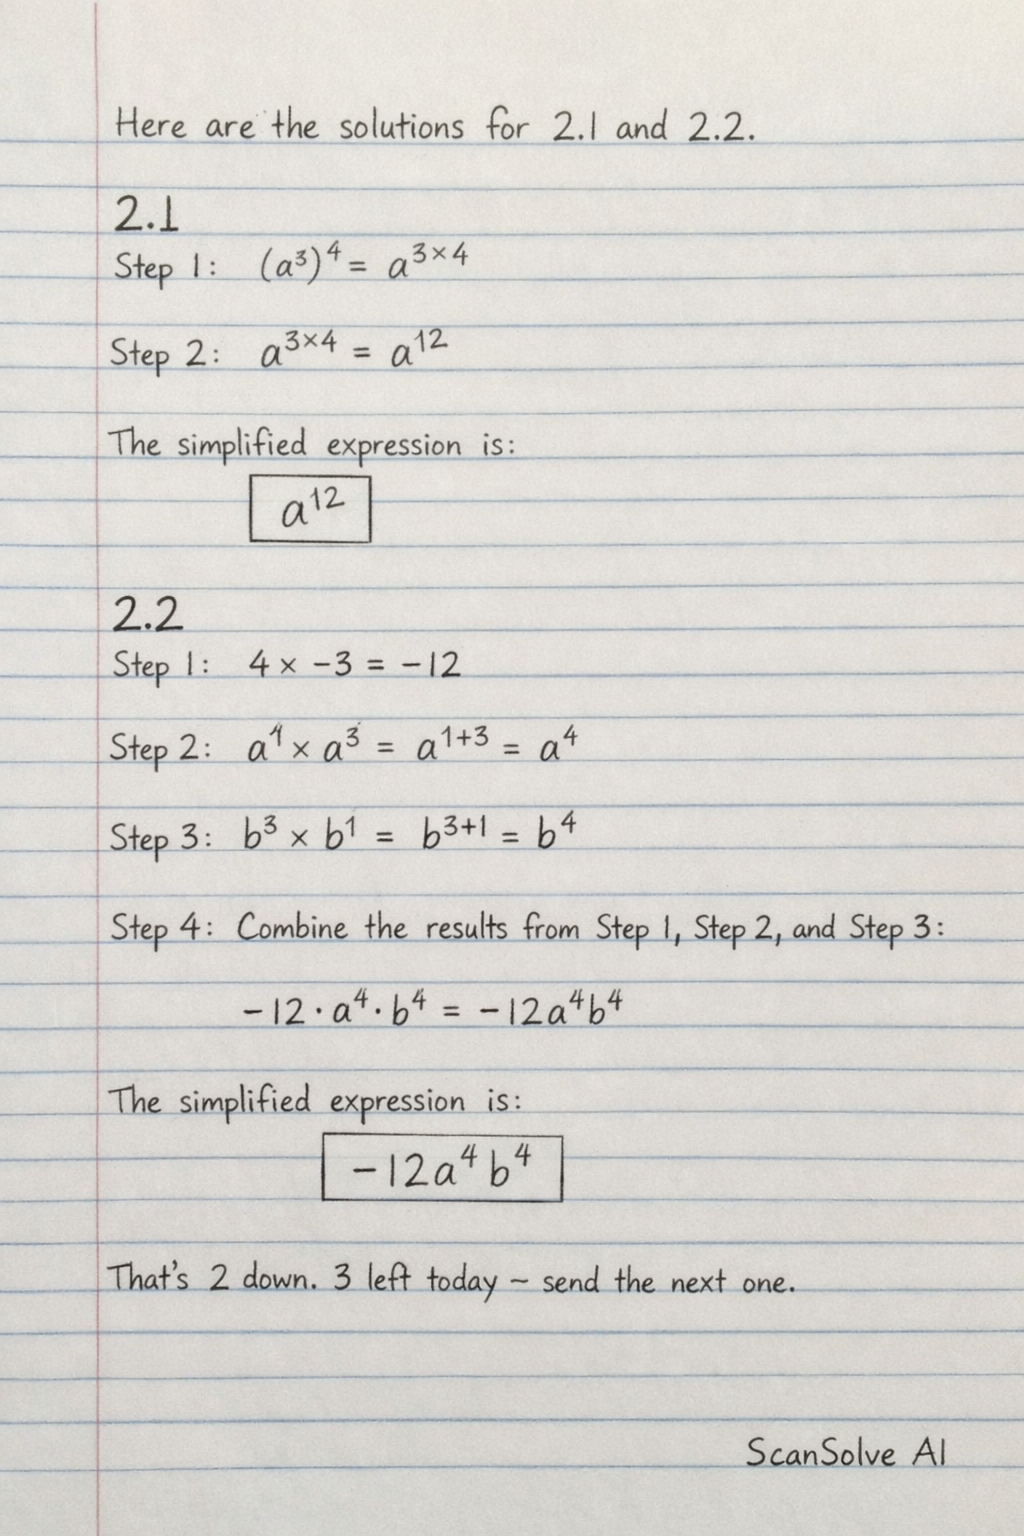 Here are the solutions for 2.1 and 2.2.
2.1
Step 1: (a³)⁴ = a³ˣ⁴
Step 2: a³ˣ⁴ = a¹²
The simplified expression is:
a¹²
2.2
Step 1: 4 × −3 = −12
Step 2: a⁴ × a³ = a¹⁺³ = a⁴
Step 3: b³ × b¹ = b³⁺¹ = b⁴
Step 4: Combine the results from Step 1, Step 2, and Step 3:
−12 · a⁴ · b⁴ = −12a⁴b⁴
The simplified expression is:
−12a⁴b⁴
That's 2 down. 3 left today – send the next one.
ScanSolve AI